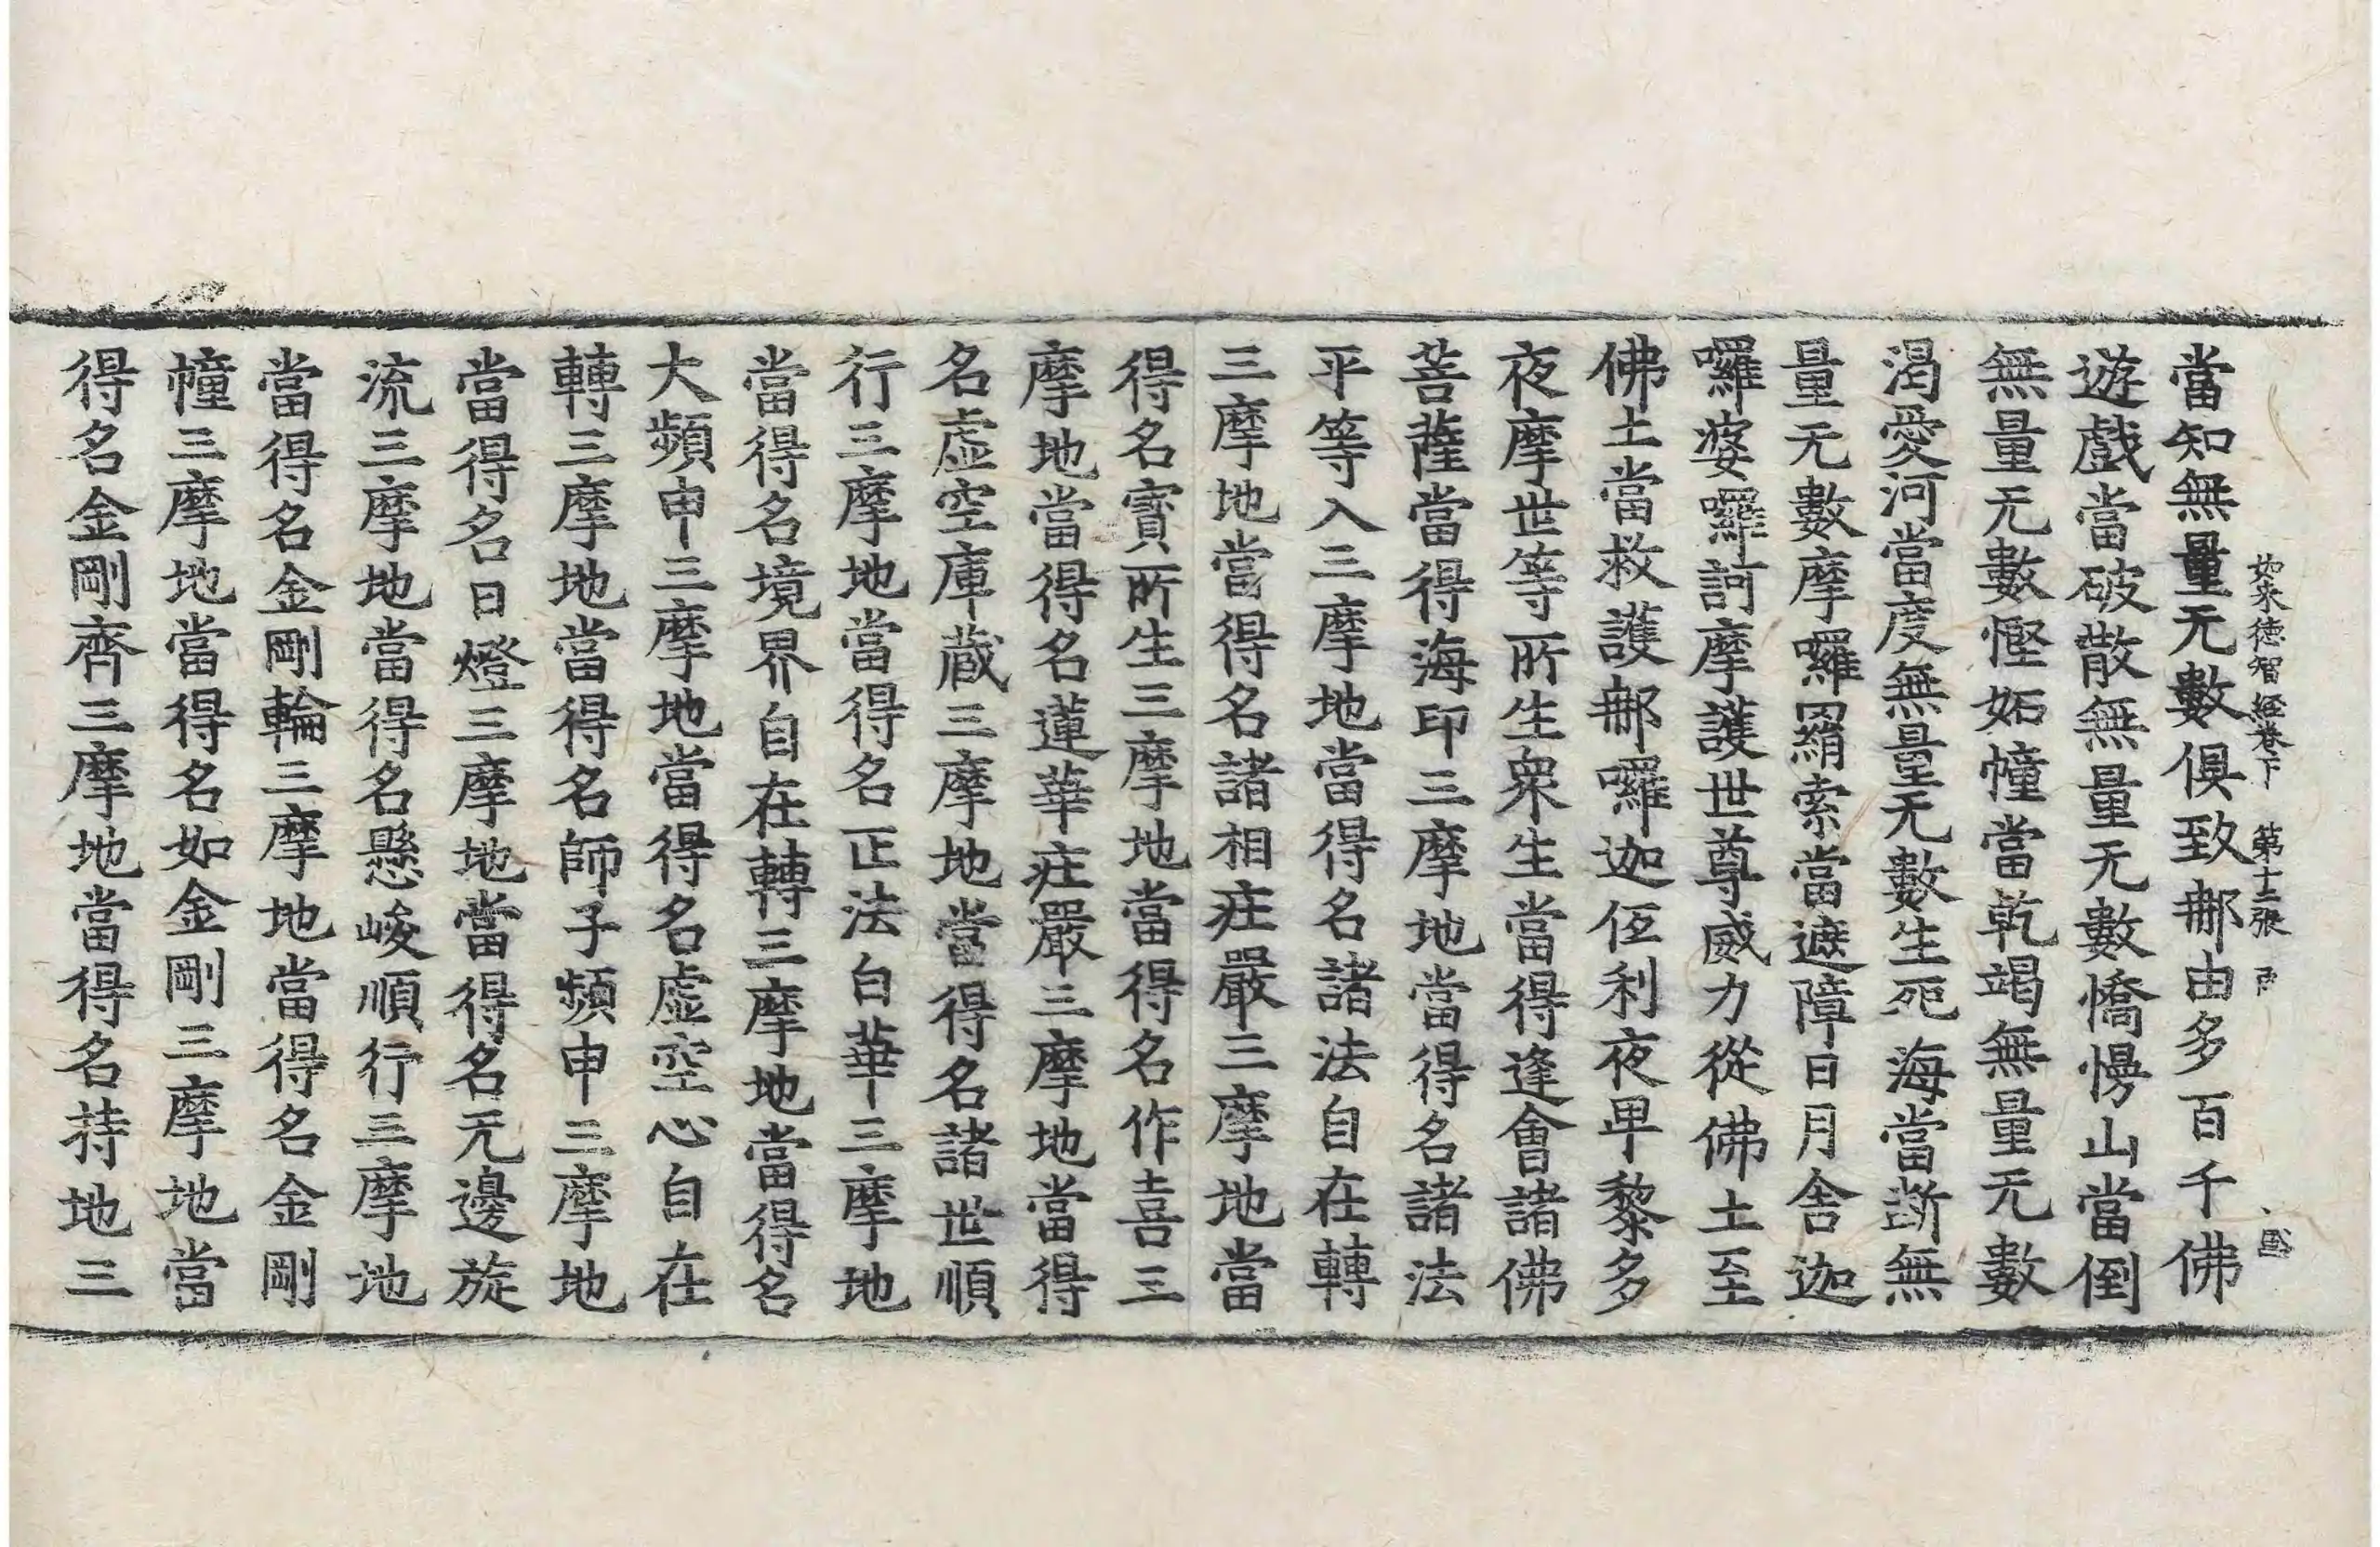 如来徳智經卷下 第十二張
當知無量无數俱致那由多百千佛
遊戲當破散無量无數憍慢山當倒
無量无數慳妬幢當乾竭無量无數
渴愛河當度無量无數生死海當断無
量无數摩囉羂索當遮障日月舍迦
囉婆囉訶摩護世尊威力從佛土至
佛土當救護那囉迦仾利夜卑黎多
夜摩世等所生衆生當得逢會諸佛
菩薩當得海印三摩地當得名諸法
平等入三摩地當得名諸法自在轉
三摩地當得名諸相㽵嚴三摩地當
得名寶所生三摩地當得名作喜三
摩地當得名蓮華㽵嚴三摩地當得
名虛空庫蔵三摩地當得名諸世順
行三摩地當得名正法白華三摩地
當得名境界自在轉三摩地當得名
大頻申三摩地當得名虛空心自在
轉三摩地當得名師子頻申三摩地
當得名日燈三摩地當得名无邊旋
流三摩地當得名懸峻順行三摩地
當得名金剛輪三摩地當得名金剛
幢三摩地當得名如金剛三摩地當
得名金剛齊三摩地當得名持地三